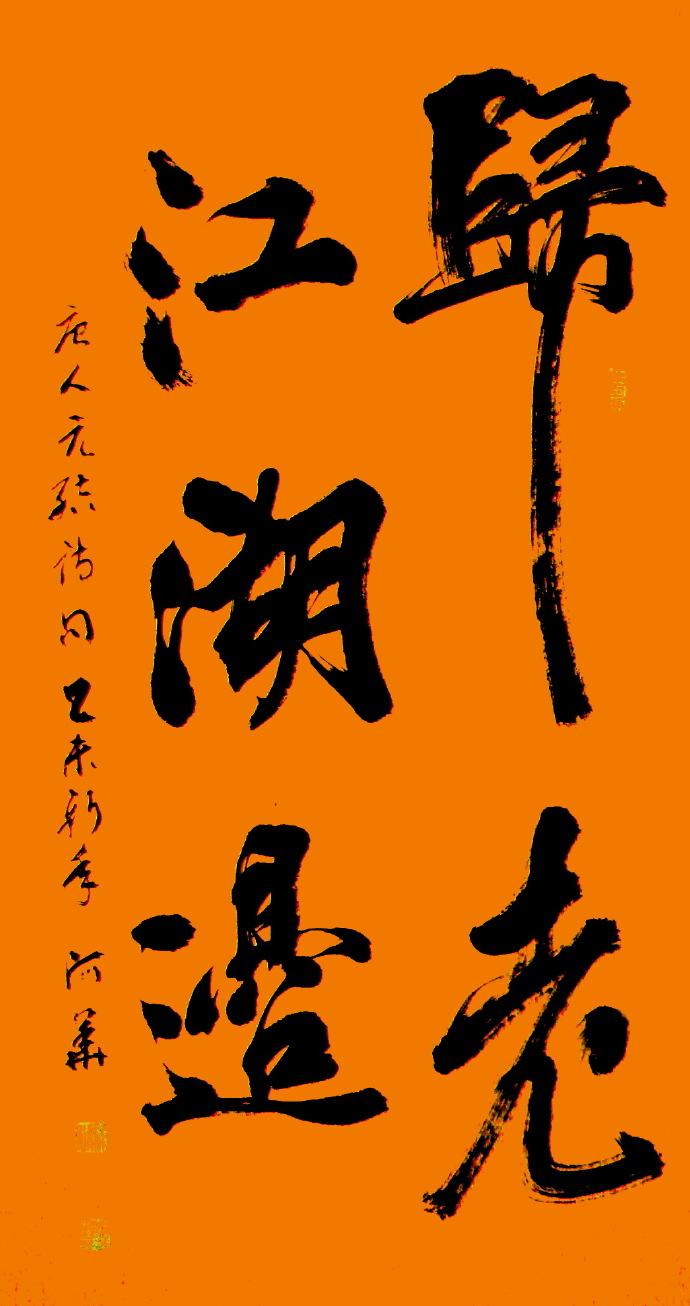 歸老
江湖邊
唐人元結詩句 乙未新年